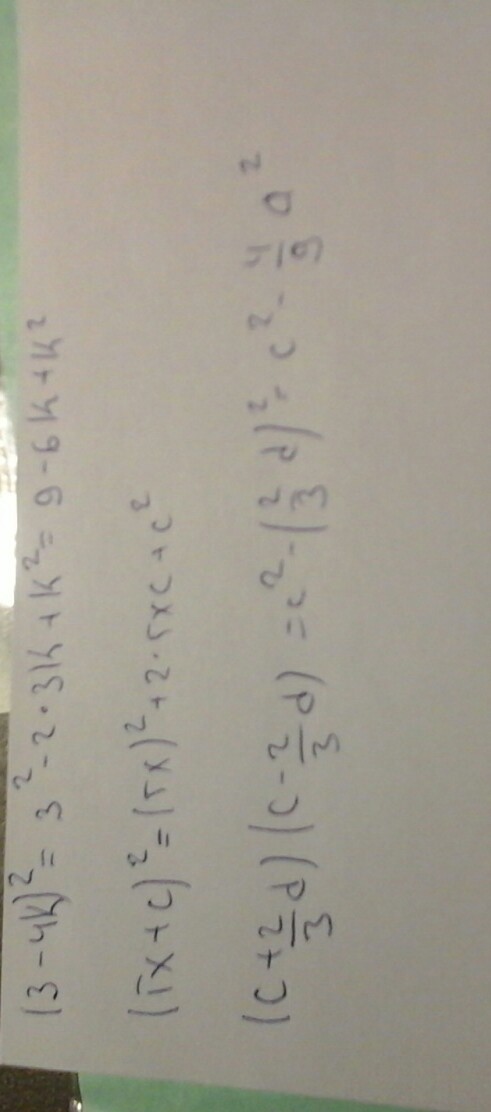 (3-4k)² = 3² - 2·3k + k² = 9 - 6k + k²
(5x+c)² = (5x)² + 2·5xc + c²
(c + 2/3 d)(c - 2/3 d) = c² - (2/3 d)² = c² - 4/9 a²